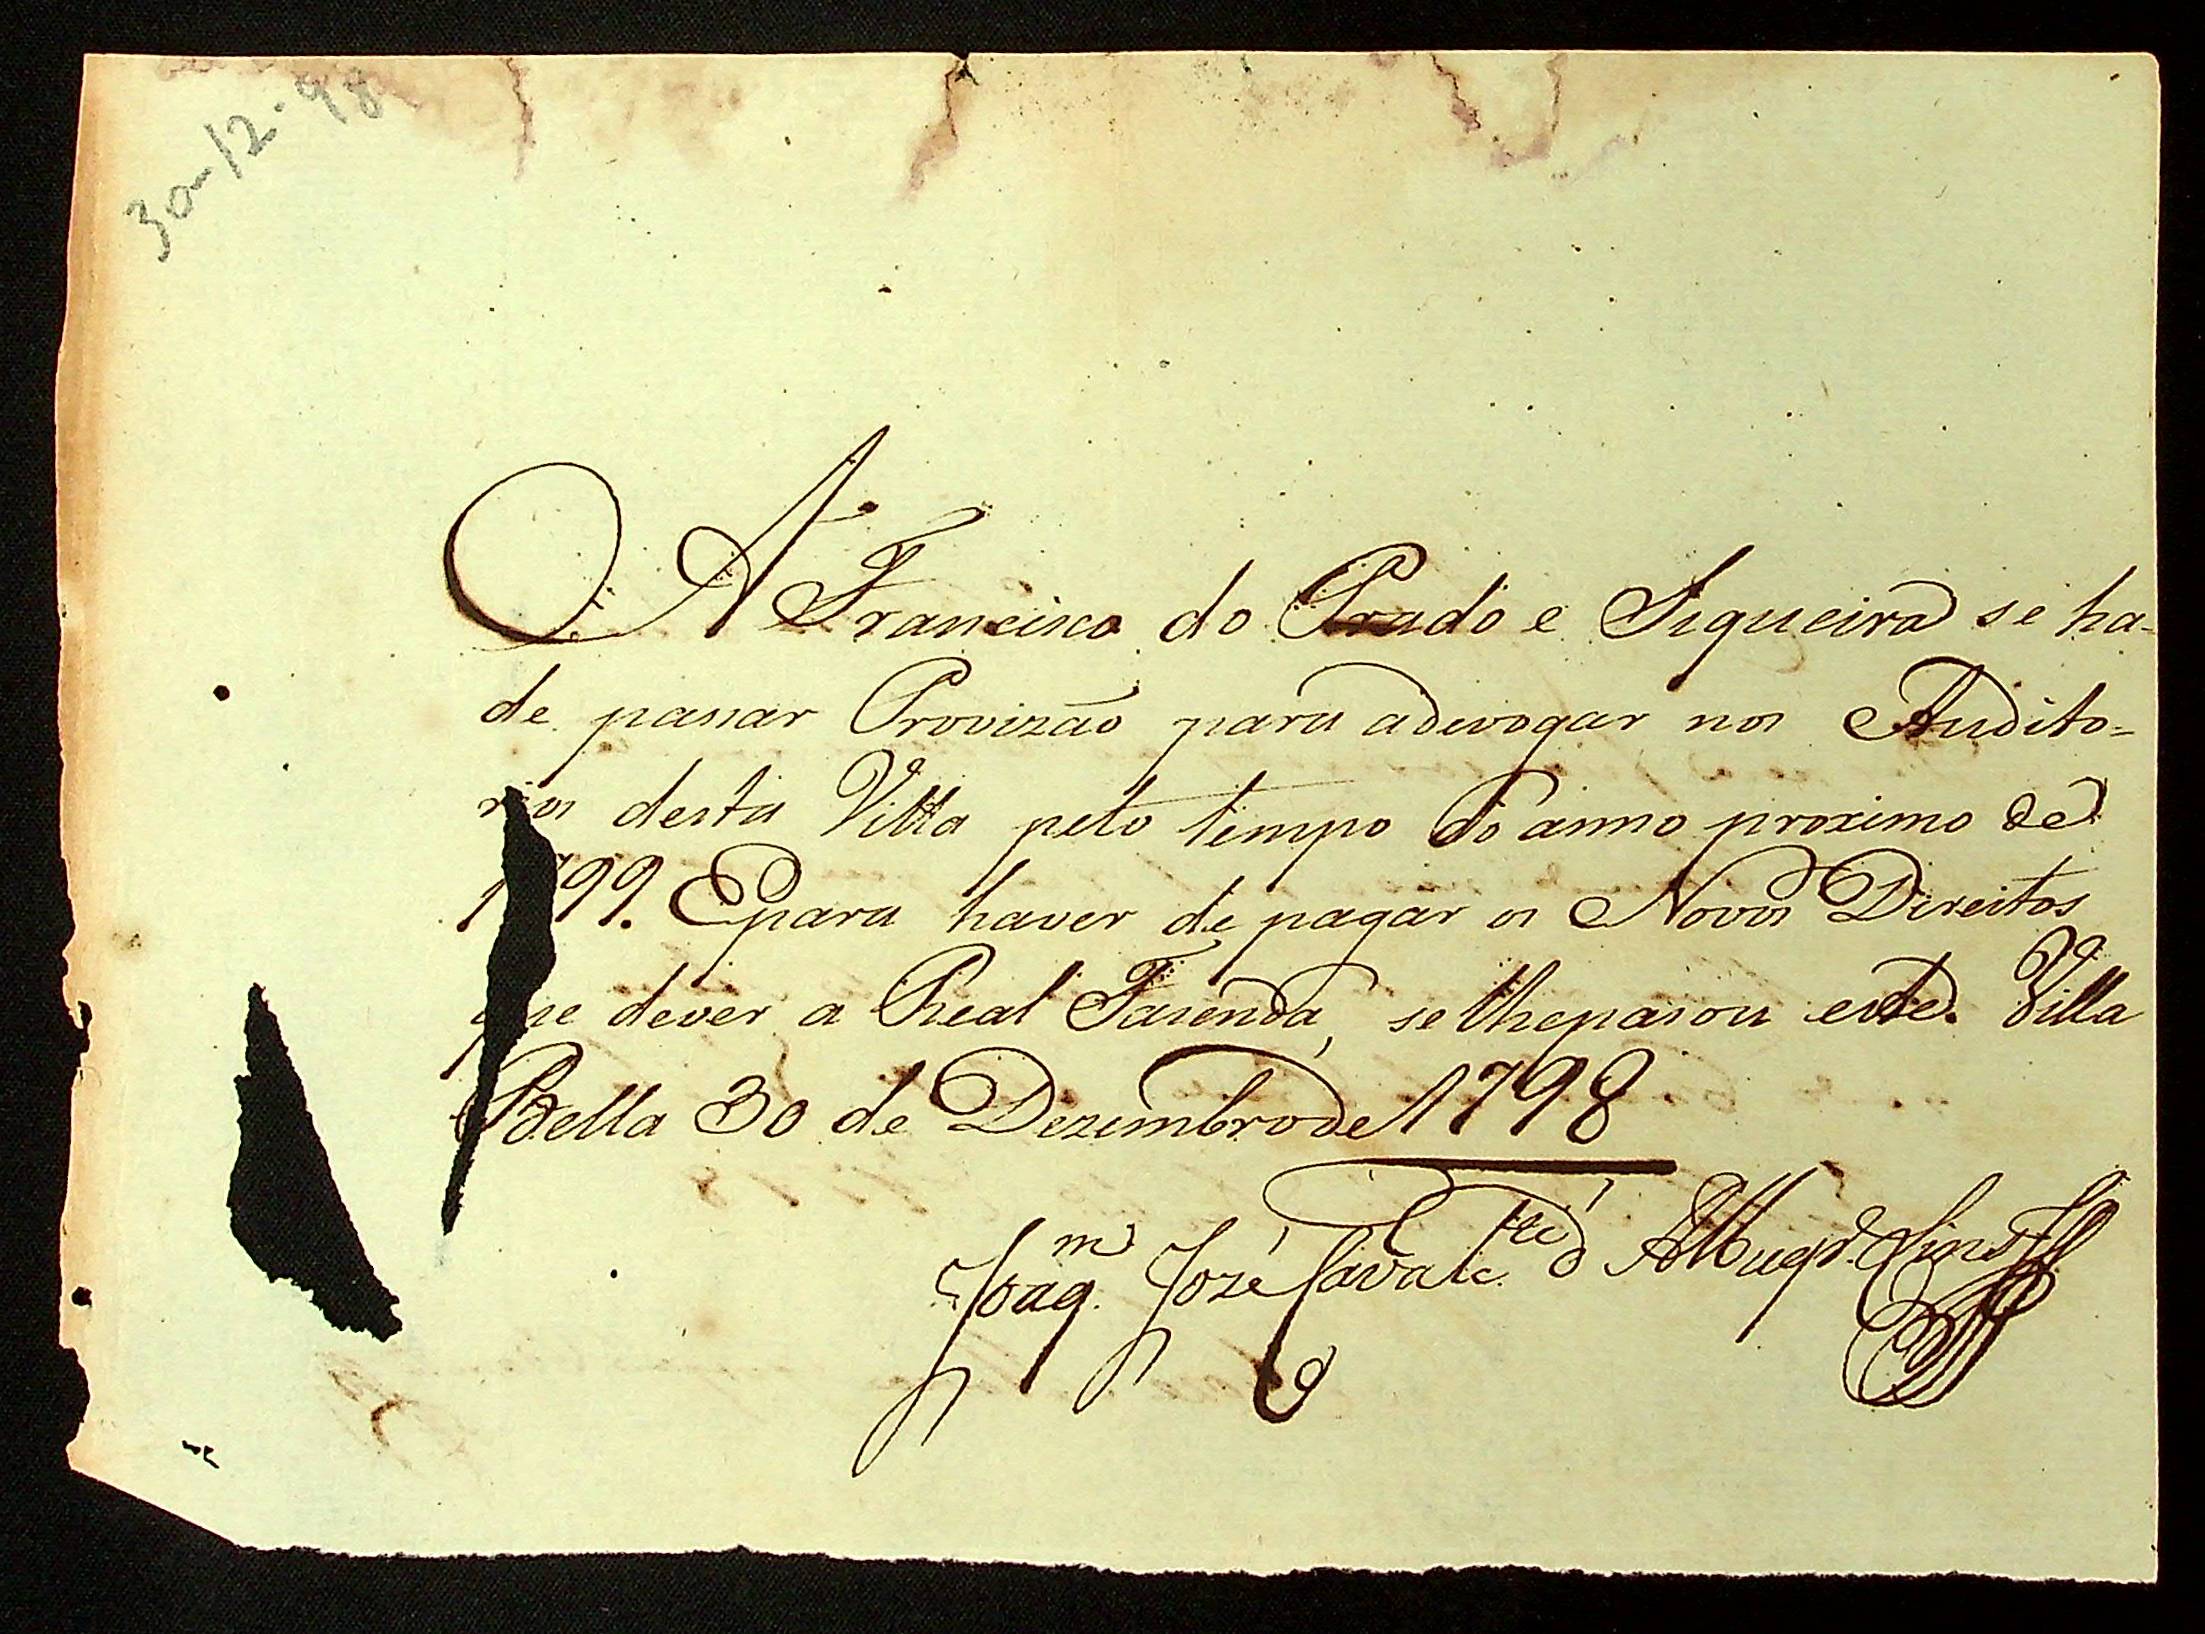 30-12-98
A Francisco do Prado e Siqueira se ha-
de passar Provizão para adevogar nos Audito=
rios desta Villa pelo tempo do anno proximo de
1799. Epara haver de pagar os Novos Direitos
que dever a Real Fazenda, se lhepassou este. Villa
Bella 30 de Dezembro de 1798
Joaq.m Jozé Cavalc.te d'Albuqr.e Lins